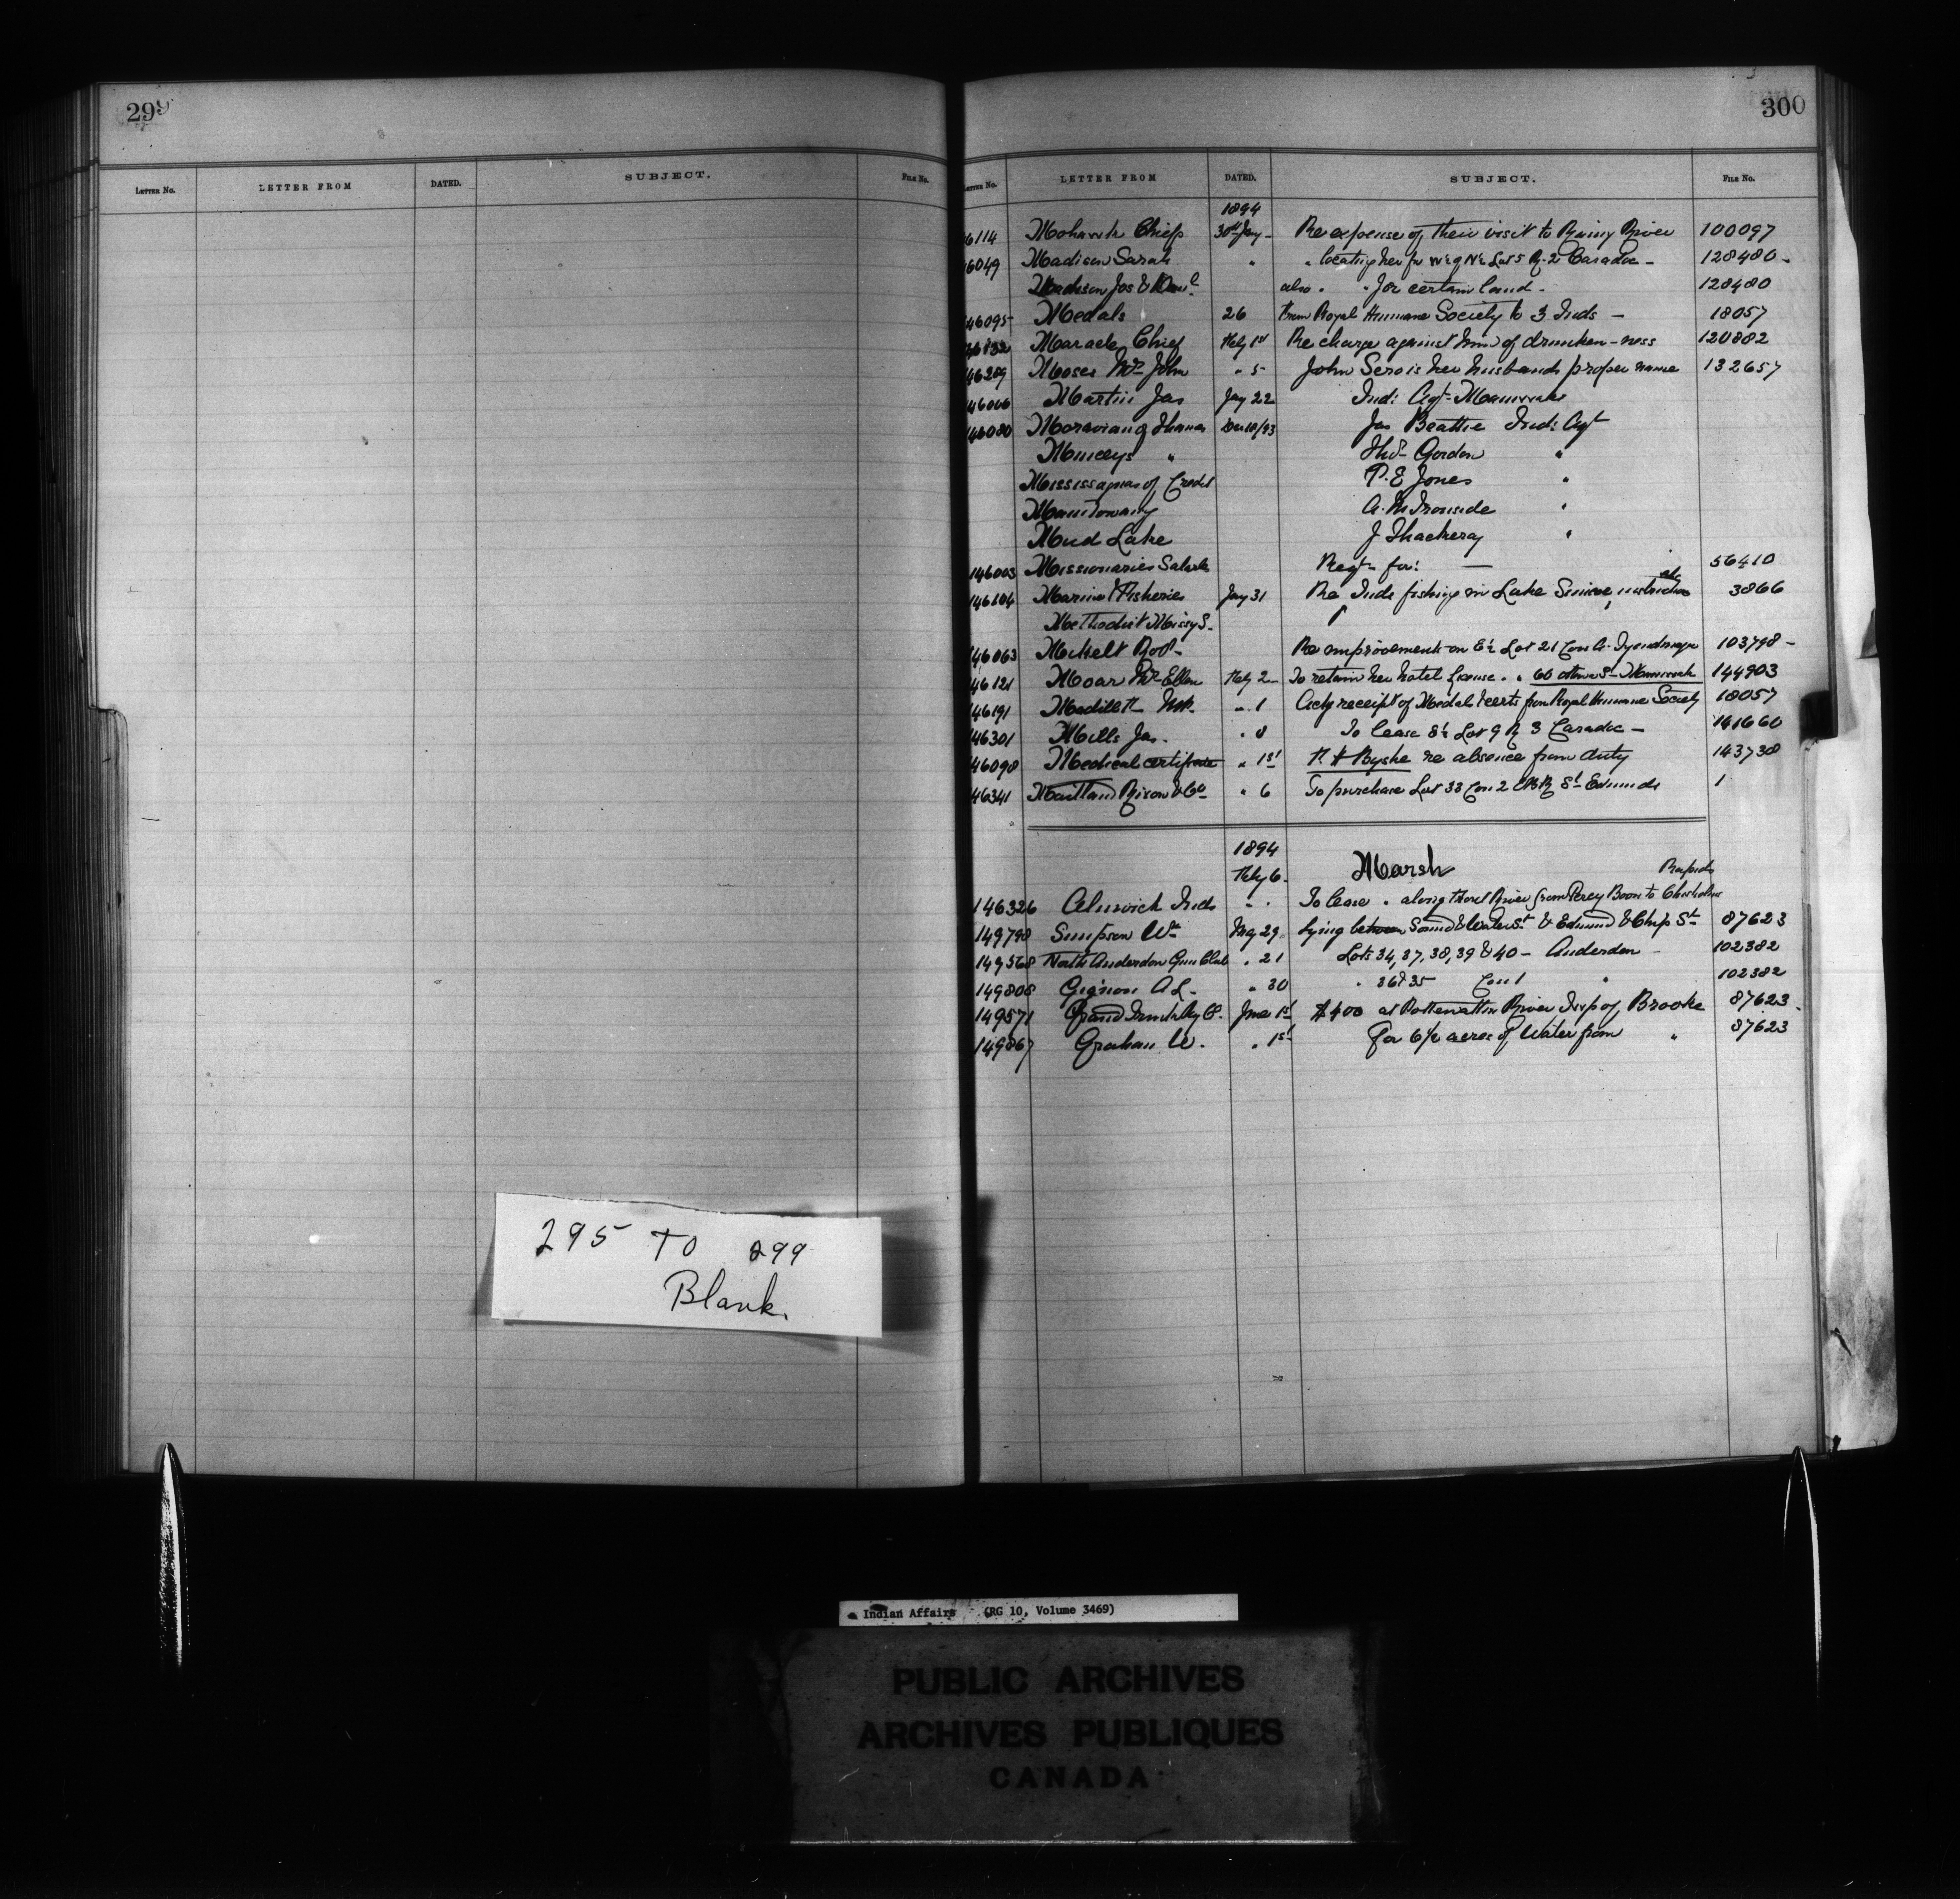 299
LETTER No. LETTER FROM DATED. SUBJECT. FILE No.
295 TO 299
Blank.
300
LETTER No. LETTER FROM DATED. SUBJECT. FILE No.
1894
6114 Mohawk Chiefs 30th Jay - Re expense of their visit to Rainy River 100097
6049 Madison Sarah " " locating her for W½ of N½ Lot 5 R. 2 Caradoc - 128480 -
Madison Jas & Danl also " " for certain land - 128480
46095 Medals 26 From Royal Humane Society to 3 Inds - 18057
46132 Maracle Chief Feby 1st Re charge against him of drunken-ness 120882
46289 Moses Mrs John " 5 John Sero is her husbands proper name 132657
46006 Martin Jas Jay 22 Ind: Agt - Maniwaki
146080 Moravian of Thames Dec 18/93 Jas Beattie Ind: Agt
Munceys " Thos Gordon "
Mississaguas of Credit P. E Jones "
Manitowang A. M Ironside "
Mud Lake J Thackeray "
146003 Missionaries Salaries Reqn for: — 56410
146104 Marine & Fisheries Jay 31 Re Inds fishing in Lake Simcoe, instructions etc 3866
Methodist Missy S. "
146063 Mikelt Robt - Re improvements on E½ Lot 21 Con A. Tyendinaga 103798 -
46121 Moar Mrs Ellen Feby 2 - To retain her hotel license. " 60 Selkirk 144903
46191 " 1 Ackg receipt of Medal & certs from Royal Humane Society 18057
46301 Mills Jas. " 8 To lease S½ Lot 9 R 3 Caradoc - 141660
46098 Medical certificate " 1st re absence from duty 143738
46341 Maitland Rixon & Co " 6 To purchase Lot 33 Con 2 St Edmunds 1
1894 Marsh
Feby 6 - Rapids
146326 Alnwick Inds " . To lease " along Trent River from Percy Boom to Chisholms
149798 Simpson Wm May 29 Lying between Sound & Water St & Edmund & Chip St 87623
149568 North Anderdon Gun Club " 21 Lots 34, 37, 38, 39 & 40 - Anderdon - 102382
149808 Gignon A L. " 30 " 36 & 35 Con 1 " 102382
149571 Grand Trunk Ry Co. June 1st $400 at Pottewattim River Twp of Brooke 87623 -
149867 Graham W. " 1st For 6½ acres of Water from " 87623
Indian Affairs (RG 10, Volume 3469)
PUBLIC ARCHIVES
ARCHIVES PUBLIQUES
CANADA